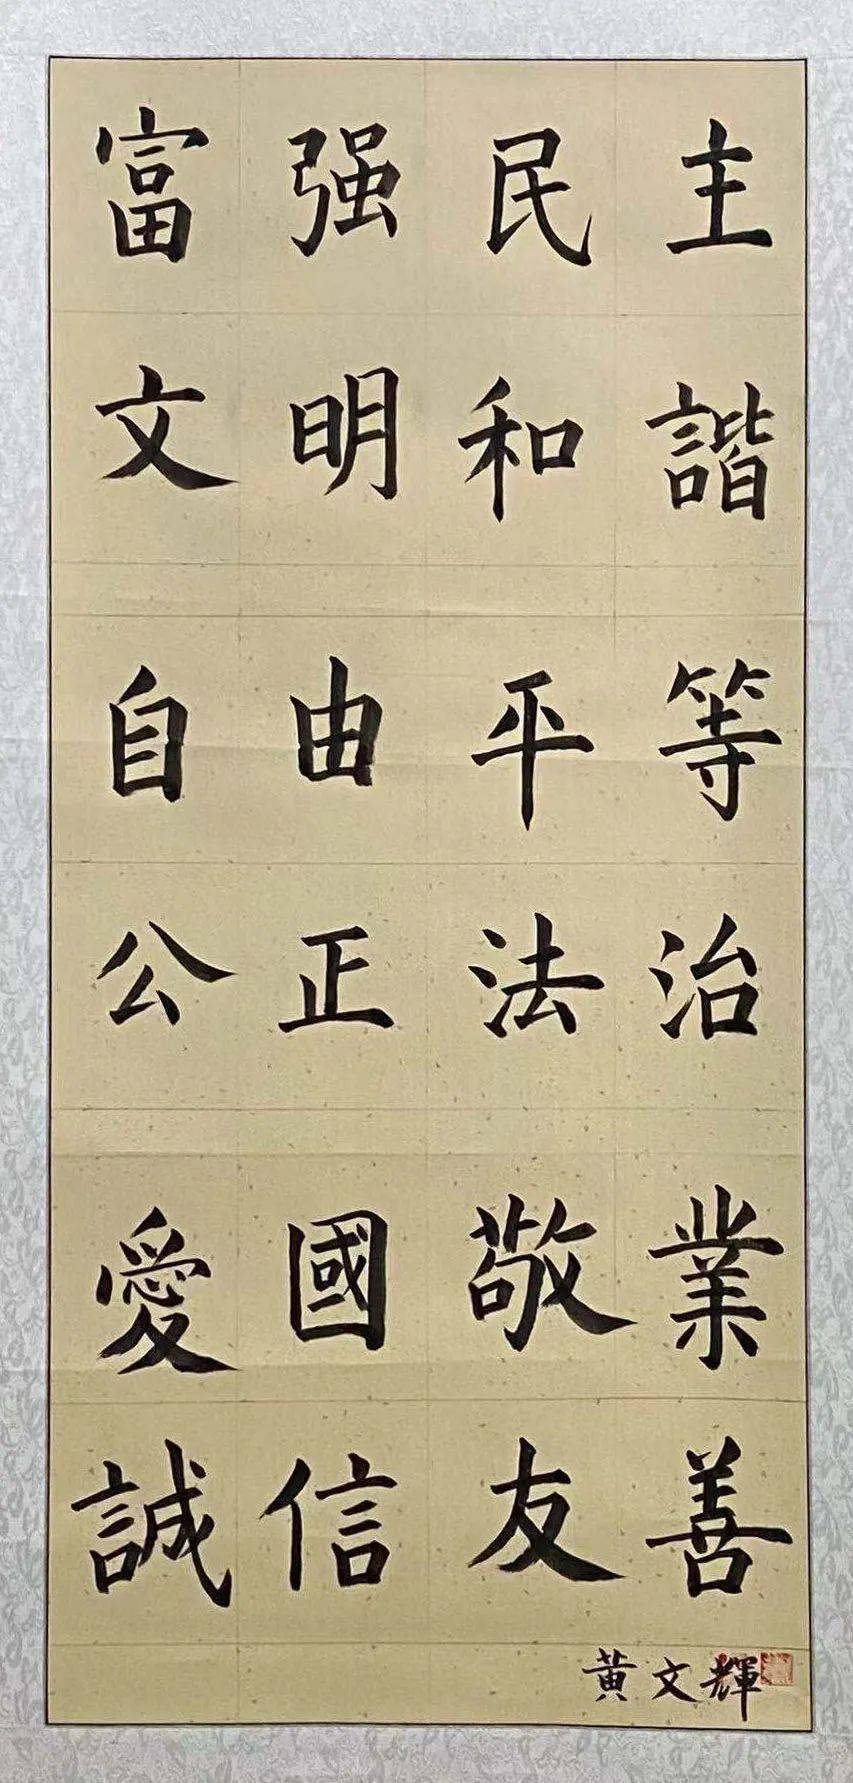 富强民主
文明和諧
自由平等
公正法治
愛國敬業
誠信友善
黃文輝